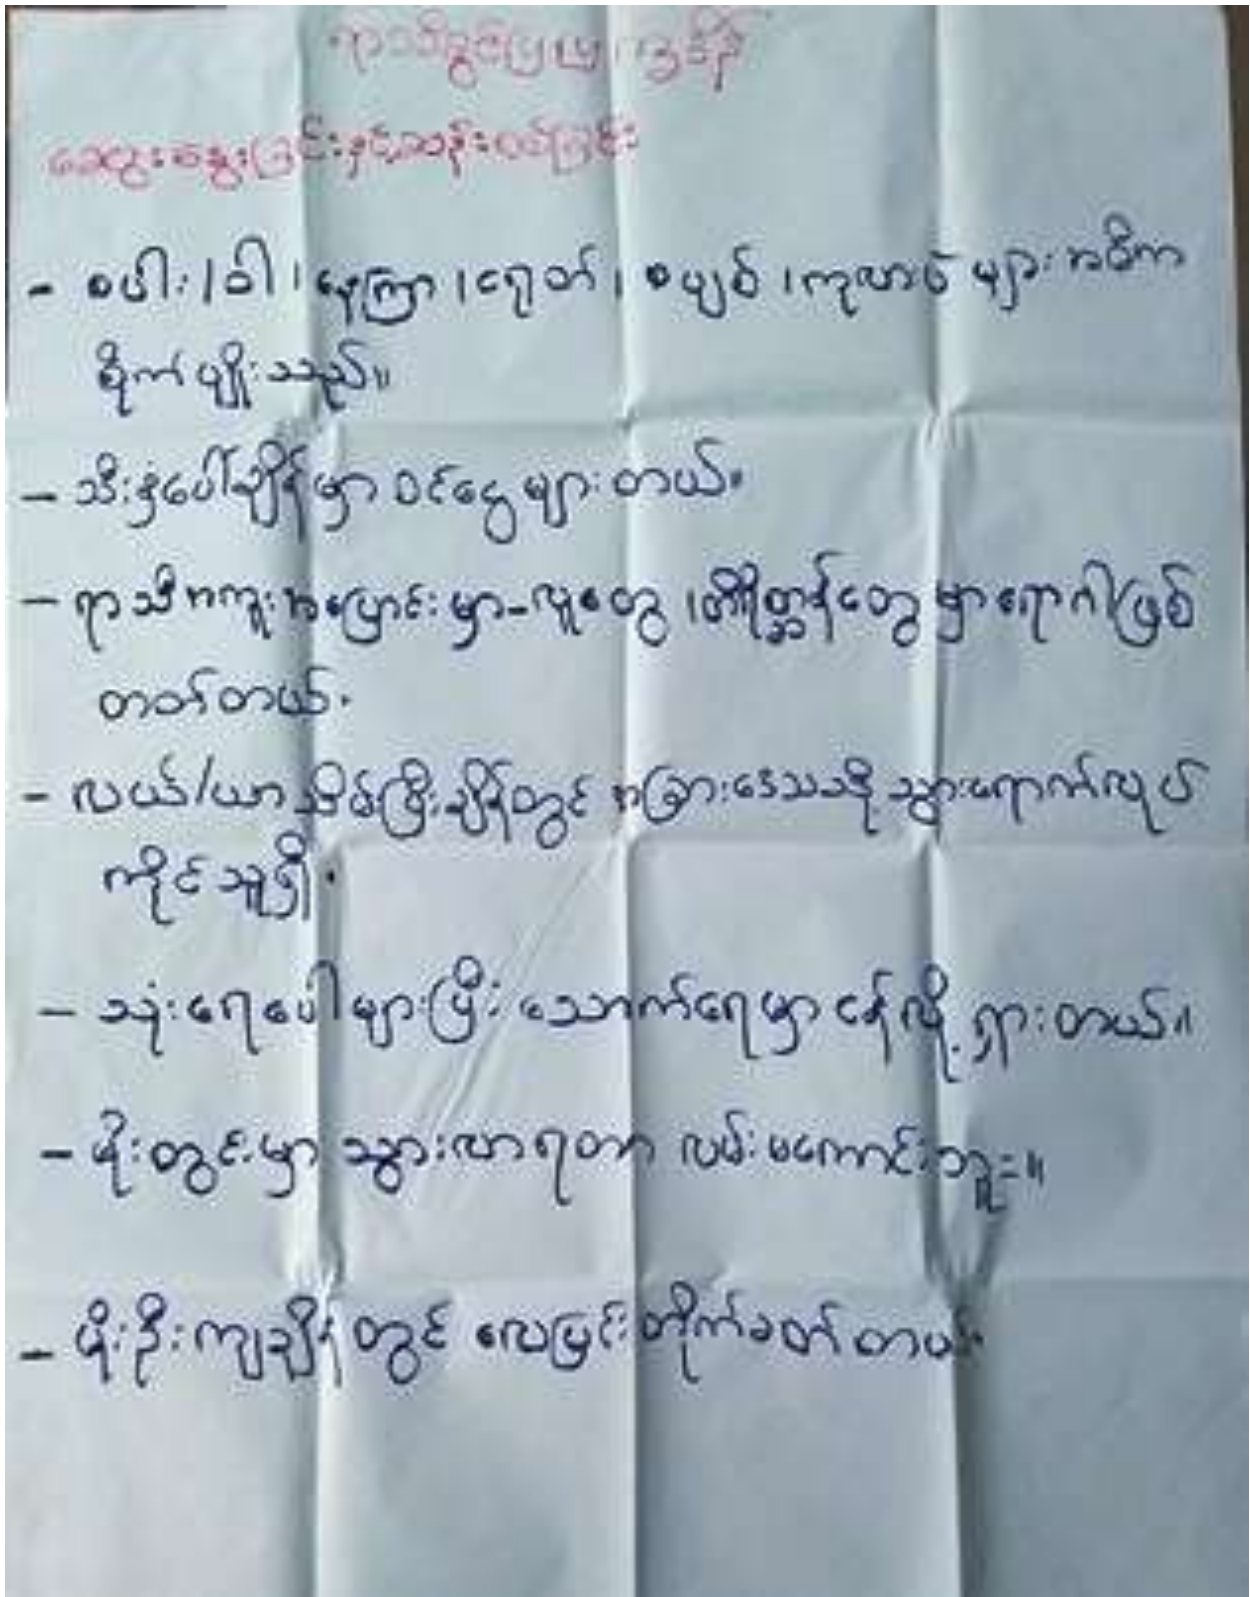 ရာသီခွင်ပြပြက္ခဒိန်
ဆွေးနွေးခြင်းနှင့်ဆန်းစစ်ခြင်း
- စပါး / ဝါ ၊ နေကြာ ၊ ရွှေတ် ၊ စပျစ် ၊ ကုလားပဲ များ အဓိက
စိုက်ပျိုးသည်။
- သီးနှံပေါ်ချိန်မှာ ဝင်ငွေများတယ်။
- ရာသီအကူးအပြောင်းမှာ-လူတွေ ၊ တိရိစ္ဆာန်တွေမှာရောဂါဖြစ်
တတ်တယ်။
- လယ်/ယာ သိမ်းပြီးချိန်တွင် အခြားဒေသသို့ သွားရောက်လုပ်
ကိုင်သူရှိ။
- သုံးရေပေါများပြီး သောက်ရေမှာ ငန်လို့ ရှားတယ်။
- မိုးတွင်းမှာ သွားလာရတာ လမ်းမကောင်းဘူး။
- မိုးဦးကျချိန်တွင် လေပြင်းတိုက်ခတ်တယ်။